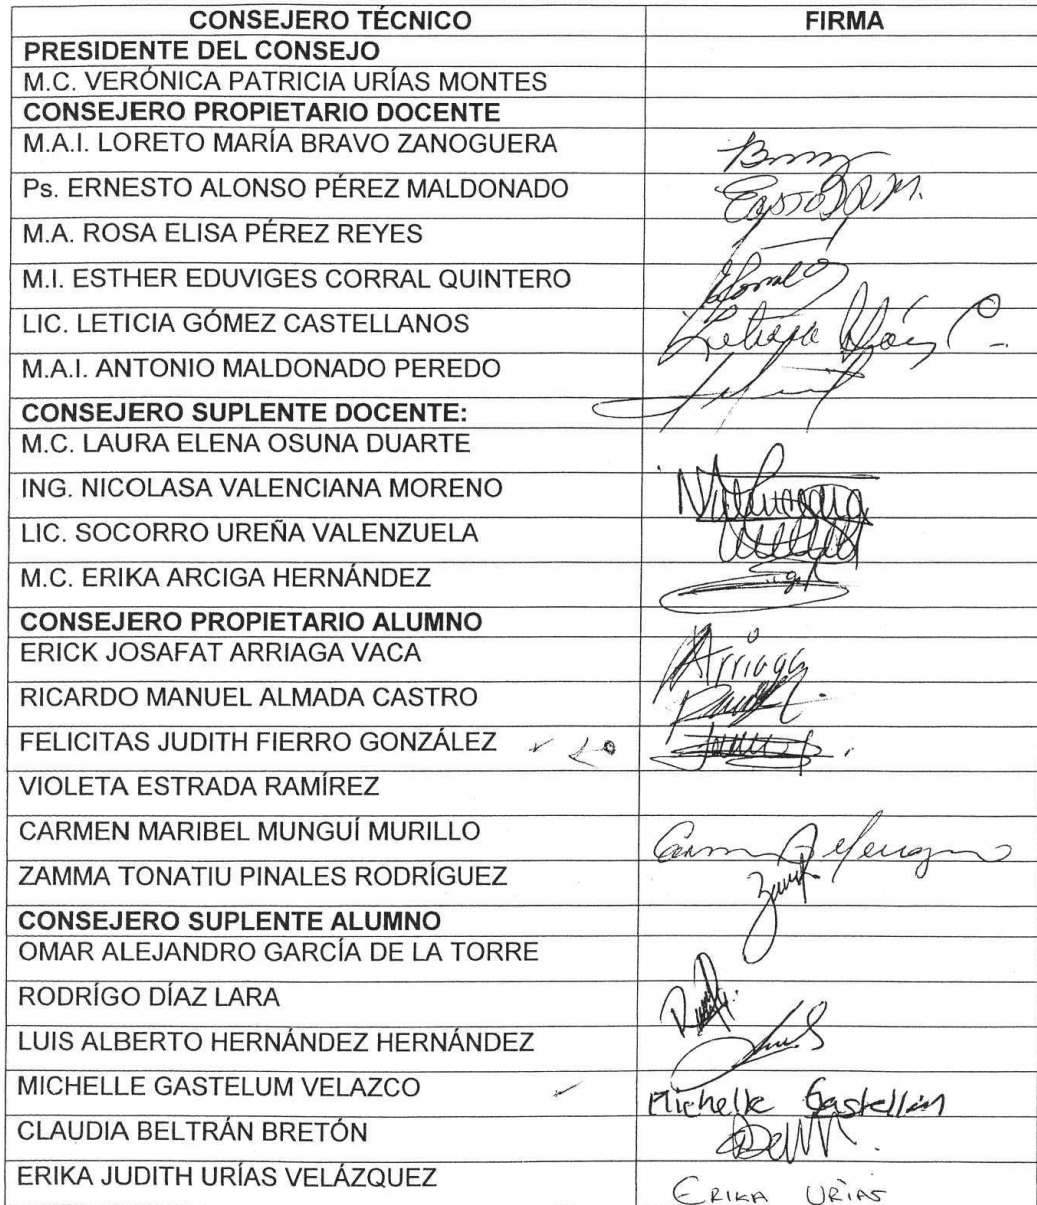 CONSEJERO TÉCNICO FIRMA
PRESIDENTE DEL CONSEJO
M.C. VERÓNICA PATRICIA URÍAS MONTES
CONSEJERO PROPIETARIO DOCENTE
M.A.I. LORETO MARÍA BRAVO ZANOGUERA
Ps. ERNESTO ALONSO PÉREZ MALDONADO
M.A. ROSA ELISA PÉREZ REYES
M.I. ESTHER EDUVIGES CORRAL QUINTERO
LIC. LETICIA GÓMEZ CASTELLANOS
M.A.I. ANTONIO MALDONADO PEREDO
CONSEJERO SUPLENTE DOCENTE:
M.C. LAURA ELENA OSUNA DUARTE
ING. NICOLASA VALENCIANA MORENO
LIC. SOCORRO UREÑA VALENZUELA
M.C. ERIKA ARCIGA HERNÁNDEZ
CONSEJERO PROPIETARIO ALUMNO
ERICK JOSAFAT ARRIAGA VACA Arriaga
RICARDO MANUEL ALMADA CASTRO
FELICITAS JUDITH FIERRO GONZÁLEZ
VIOLETA ESTRADA RAMÍREZ
CARMEN MARIBEL MUNGUÍ MURILLO
ZAMMA TONATIU PINALES RODRÍGUEZ
CONSEJERO SUPLENTE ALUMNO
OMAR ALEJANDRO GARCÍA DE LA TORRE
RODRÍGO DÍAZ LARA
LUIS ALBERTO HERNÁNDEZ HERNÁNDEZ
MICHELLE GASTELUM VELAZCO Michelle Gastellum
CLAUDIA BELTRÁN BRETÓN
ERIKA JUDITH URÍAS VELÁZQUEZ ERIKA URÍAS